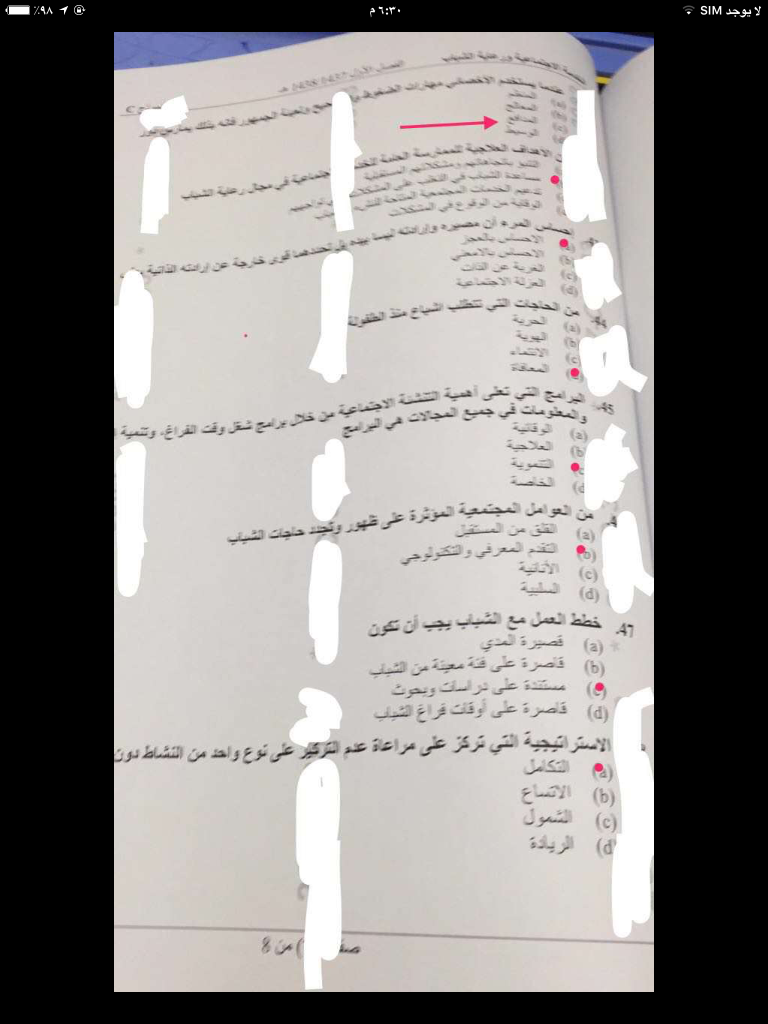 لا يوجد SIM
٦:٣٠ م
٪٩٨
الخدمة الاجتماعية ورعاية الشباب
الفصل الأول 1438/1437 هـ
عندما يستخدم الأخصائي مهارات الضغوط وتعبئة الجمهور فإنه بذلك يمارس دور
(a) المنظم
(b) المعالج
(c) المدافع
الوسيط
الأهداف العلاجية للممارسة العامة اجتماعية في مجال رعاية الشباب
التنبؤ باتجاهاتهم ومشكلاتهم المستقبلية
مساعدة الشباب في التغلب على المشكلات تواجههم
تدعيم الخدمات المجتمعية المتاحة
الوقاية من الوقوع في المشكلات
إحساس المرء أن مصيره وإرادته ليسا بيده بل تحددهما قوى خارجة عن إرادته الذاتية
الاحساس بالعجز
(b) الاحساس
(c) الغربة عن الذات
(d) العزلة الاجتماعية
من الحاجات التي تتطلب اشباع منذ الطفولة
(a) الحرية
(b) الهوية
(c) الانتماء
المعافاة
45. البرامج التي تعلى أهمية التنشئة الاجتماعية من خلال برامج شغل وقت الفراغ، وتنمية
والمعلومات في جميع المجالات هي البرامج
(a) الوقائية
(b) العلاجية
(c) التنموية
(d) الخاصة
من العوامل المجتمعية المؤثرة على ظهور وتجدد حاجات الشباب
(a) القلق من المستقبل
(b) التقدم المعرفي والتكنولوجي
(c) الأنانية
(d) السلبية
47. خطط العمل مع الشباب يجب أن تكون
(a) قصيرة المدي
(b) قاصرة على فئة معينة من الشباب
(c) مستندة على دراسات وبحوث
(d) قاصرة على أوقات فراغ الشباب
الاستراتيجية التي تركز على مراعاة عدم التركيز على نوع واحد من النشاط دون
(a) التكامل
(b) الاتساع
(c) الشمول
(d) الريادة
من 8